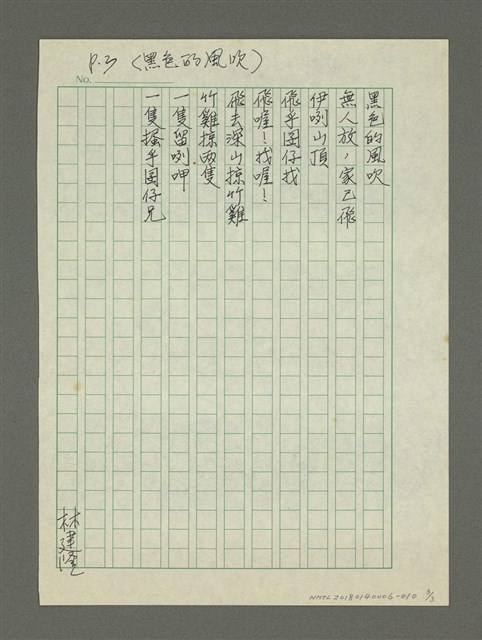 P.3 (黑色的風吹)
No.
黑色的風吹
無人放，家己飛
伊咧山頂
飛乎囝仔找
飛喔！找喔！
飛去深山掠竹雞
竹雞掠兩隻
一隻留咧呷
一隻掻乎囝仔兄
林建隆
NMTL20180140006-010 3/3